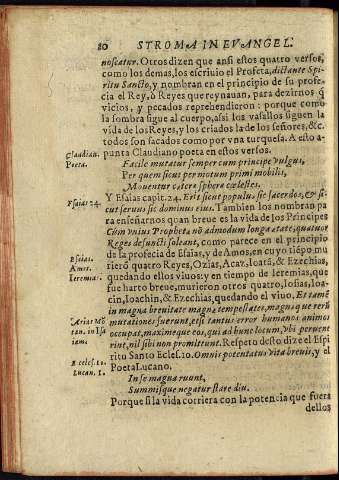 80 STROMA IN EVANGEL.
noscatur. Otros dizen que ansi estos quatro versos,
como los demas, los escriuio el Profeta, dictante Spi-
ritu Sancto, y nonbran en el principio de su profe-
cia el Rey, ò Reyes que reynauan, para dezirnos q̃
vicios, y pecados reprehendieron: porque como
la sombra sigue al cuerpo, assi los vasallos siguen la
vida de los Reyes, y los criados la de los señores, &c.
todos son sacados como por vna turquesa. A esto a-
punta Claudiano poeta en estos versos.
Claudian.
Poeta.
Facile mutatur semper cum principe vulgus,
Per quem sicut per motum primi mobilis,
Mouentur cetere sphera cœlestes.
Esaias 24.
Y Esaias capit. 24. Erit sicut populus sic sacerdos, & si-
cut seruus sic dominus eius. Tambien los nonbran pa
ra enseñarnos quan breue es la vida de los Principes
Cum vnius Propheta nõ admodum longa etate, quatuor
Reges defuncti soleant, como parece en el principio
de la profecia de Esaias, y de Amos, en cuyo tiẽpo mu-
Esaias.
Amos.
Ieremia.
rierõ quatro Reyes, Ozias, Acaz, Ioatã, & Ezechias,
quedando ellos viuos: y en tiempo de Ieremias, que
fue harto breue, murieron otros quatro, Iosias, Ioa-
cin, Ioachin, & Ezechias, quedando el viuo. Et tamẽ
in magna breuitate magna tempestates, magna que rerũ
Arias Mõ
tan. in Esa
iam.
mutationes fuerunt, etsi tantus error humanos animos
occupat, maxime eos, qui ad hunc locum, Vbi peruene
rint, nil sibi non promittunt. Respeto desto dize el Espi
Eccles. 10.
ritu Santo Ecles. 10. Omnis potentatus vita breuis, y el
Lucan. 1.
Poeta Lucano.
In se magna ruunt,
Summisque negatur stare diu.
Porque si la vida corriera con la potencia que fuera
dellos